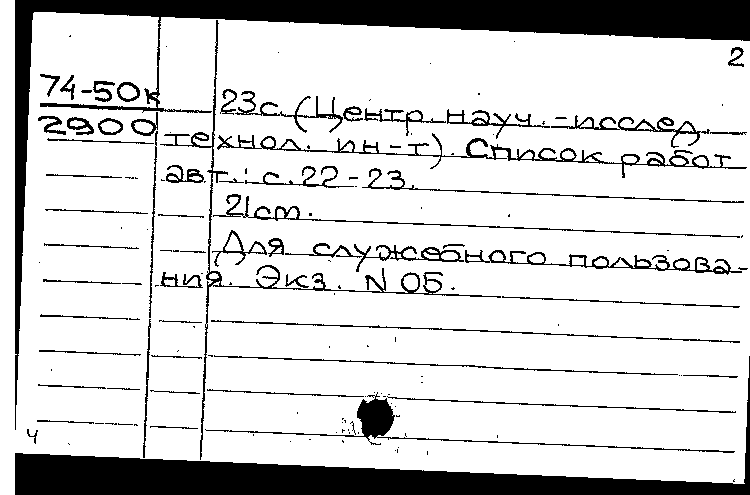 2
74-50к
2900
23с. (Центр. науч.-исслед.
технол. ин-т). Список работ
авт.: с. 22-23.
21см.
Для служебного пользова-
ния. Экз. N 05.
Ч